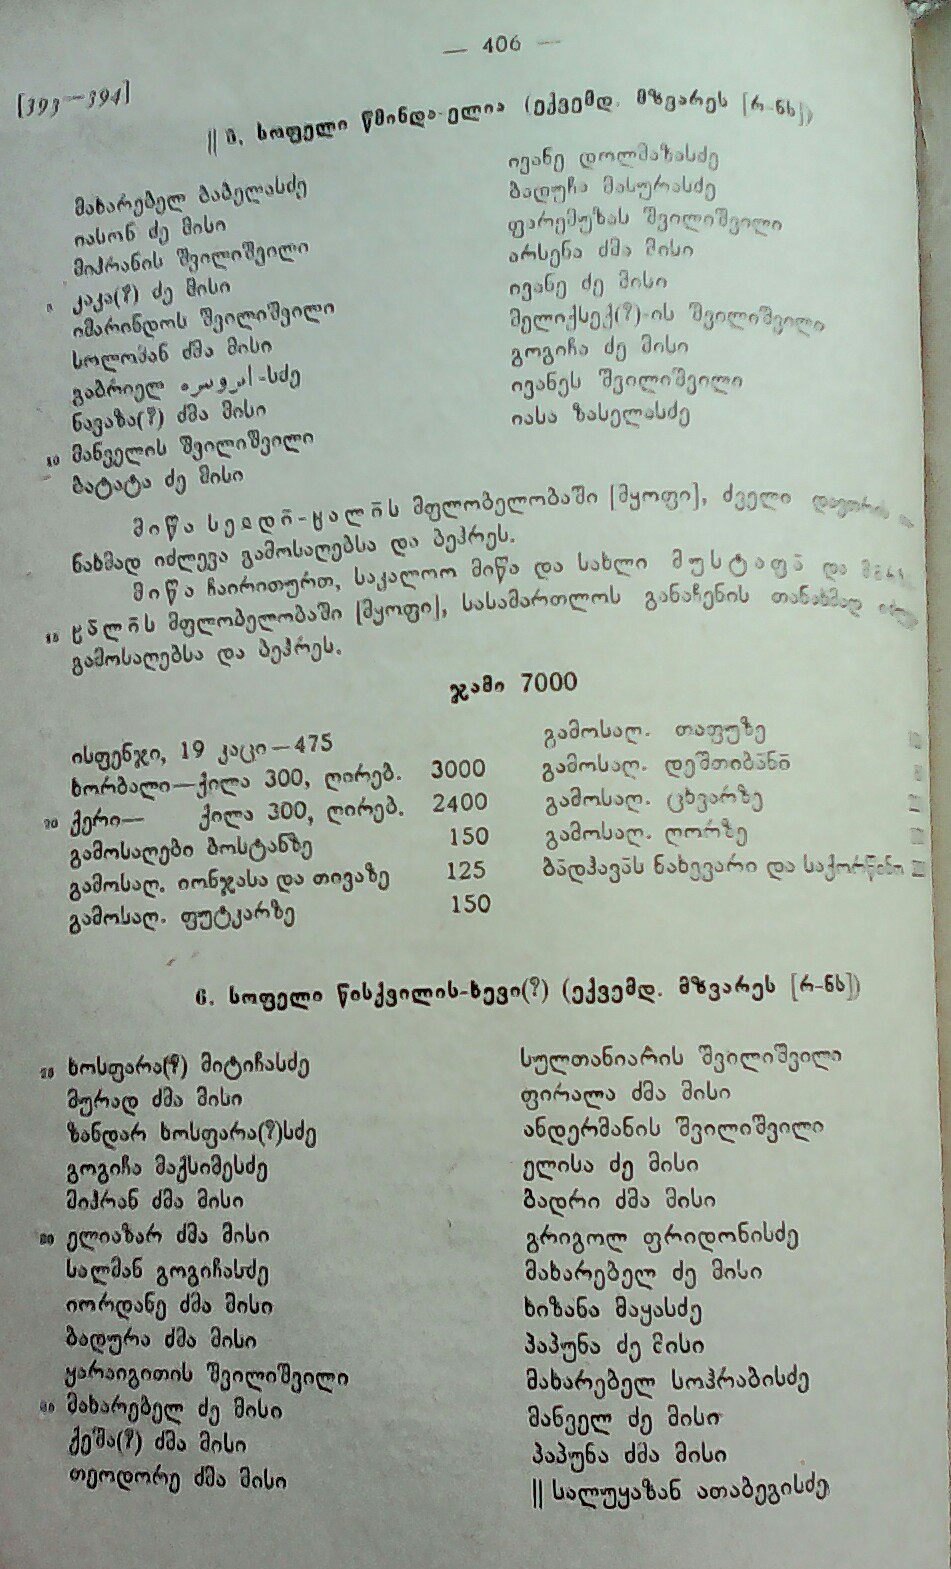 — 406 —
[393—394]
|| 8. სოფელი წმინდა-ელია (ექვემდ. მზვარეს [რ-ნს])
მახარებელ ბაბელასძე
იასონ ძე მისი
მიჰრანის შვილიშვილი
5 კაკა(?) ძე მისი
იმარინდოს შვილიშვილი
სოლომან ძმა მისი
გაბრიელ -სძე
ნავაზა(?) ძმა მისი
10 მანველის შვილიშვილი
ბატატა ძე მისი
ივანე დოლმაზასძე
ბადუჩა მასურასძე
ფარემუზას შვილიშვილი
არსენა ძმა მისი
ივანე ძე მისი
მელიქსექ(?)-ის შვილიშვილი
გოგიჩა ძე მისი
ივანეს შვილიშვილი
იასა ზასელასძე
მიწა სეიდი̄-ყალი̄ს მფლობელობაში [მყოფი], ძველი დავთრის
ნახმად იძლევა გამოსაღებსა და ბეჰრეს.
მიწა ჩაირითურთ, საკალოო მიწა და სახლი მუსტაფა̄ და
15 ყა̄ლი̄ს მფლობელობაში [მყოფი], სასამართლოს განაჩენის თანახმად
გამოსაღებსა და ბეჰრეს.
ჯამი 7000
ისფენჯი, 19 კაცი—475
ხორბალი—ქილა 300, ღირებ. 3000
20 ქერი— ქილა 300, ღირებ. 2400
გამოსაღები ბოსტანზე 150
გამოსაღ. იონჯასა და თივაზე 125
გამოსაღ. ფუტკარზე 150
გამოსაღ. თაფუზე
გამოსაღ. დეშთიბა̄ნი̄
გამოსაღ. ცხვარზე
გამოსაღ. ღორზე
ბა̄დჰავა̄ს ნახევარი და საქორწინო
9. სოფელი წისქვილის-ხევი(?) (ექვემდ. მზვარეს [რ-ნს])
25 ხოსფარა(?) მიტიჩასძე
მურად ძმა მისი
ზანდარ ხოსფარა(?)სძე
გოგიჩა მაქსიმესძე
მიჰრან ძმა მისი
30 ელიაზარ ძმა მისი
სალმან გოგიჩასძე
იორდანე ძმა მისი
ბადურა ძმა მისი
ყარაიგითის შვილიშვილი
მახარებელ ძე მისი
ქეშა(?) ძმა მისი
თეოდორე ძმა მისი
სულთანიარის შვილიშვილი
ფირალა ძმა მისი
ანდერმანის შვილიშვილი
ელისა ძე მისი
ბადრი ძმა მისი
გრიგოლ ფრიდონისძე
მახარებელ ძე მისი
ხიზანა მაყასძე
პაპუნა ძე მისი
მახარებელ სოჰრაბისძე
მანველ ძე მისი
პაპუნა ძმა მისი
|| სალუყაზან ათაბეგისძე